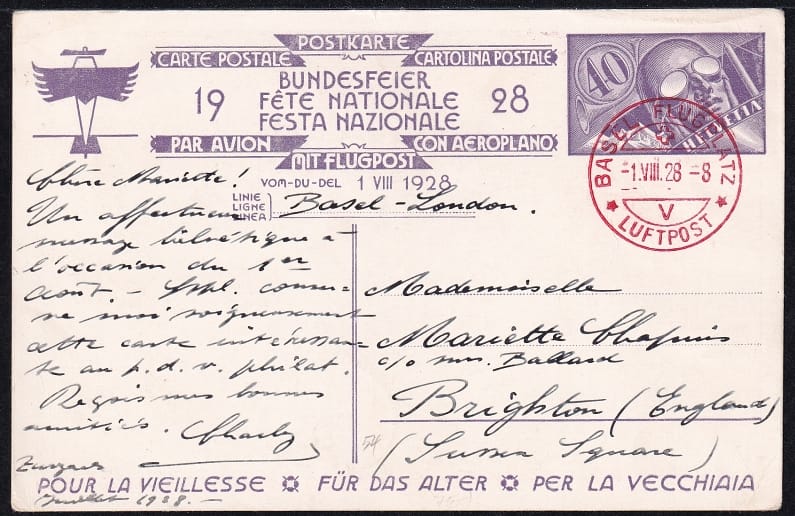 POSTKARTE
CARTE POSTALE CARTOLINA POSTALE
BUNDESFEIER
19 FÊTE NATIONALE 28
FESTA NAZIONALE
PAR AVION CON AEROPLANO
MIT FLUGPOST
VOM-DU-DEL 1 VIII 1928
LINIE
LIGNE
LINEA
Basel - London.
40
HELVETIA
BASEL FLUGPLATZ
-1.VIII.28 -8
V
LUFTPOST
Chère Mariette!
Un affectueux
message helvétique à
l'occasion du 1er
Août - conser-
ve moi soigneusement
cette carte intéressan-
te au p.d.v. philat.
Reçois mes bonnes
amitiés. Charly
Juillet 1928.-
Mademoiselle
Mariette Chapuis
c/o mrs. Ballard
Brighton (England)
(Sussex Square)
54
POUR LA VIEILLESSE FÜR DAS ALTER PER LA VECCHIAIA